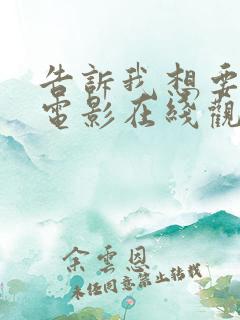 告訴我想要
電影在綫觀
余雲恩
未经同意禁止转载